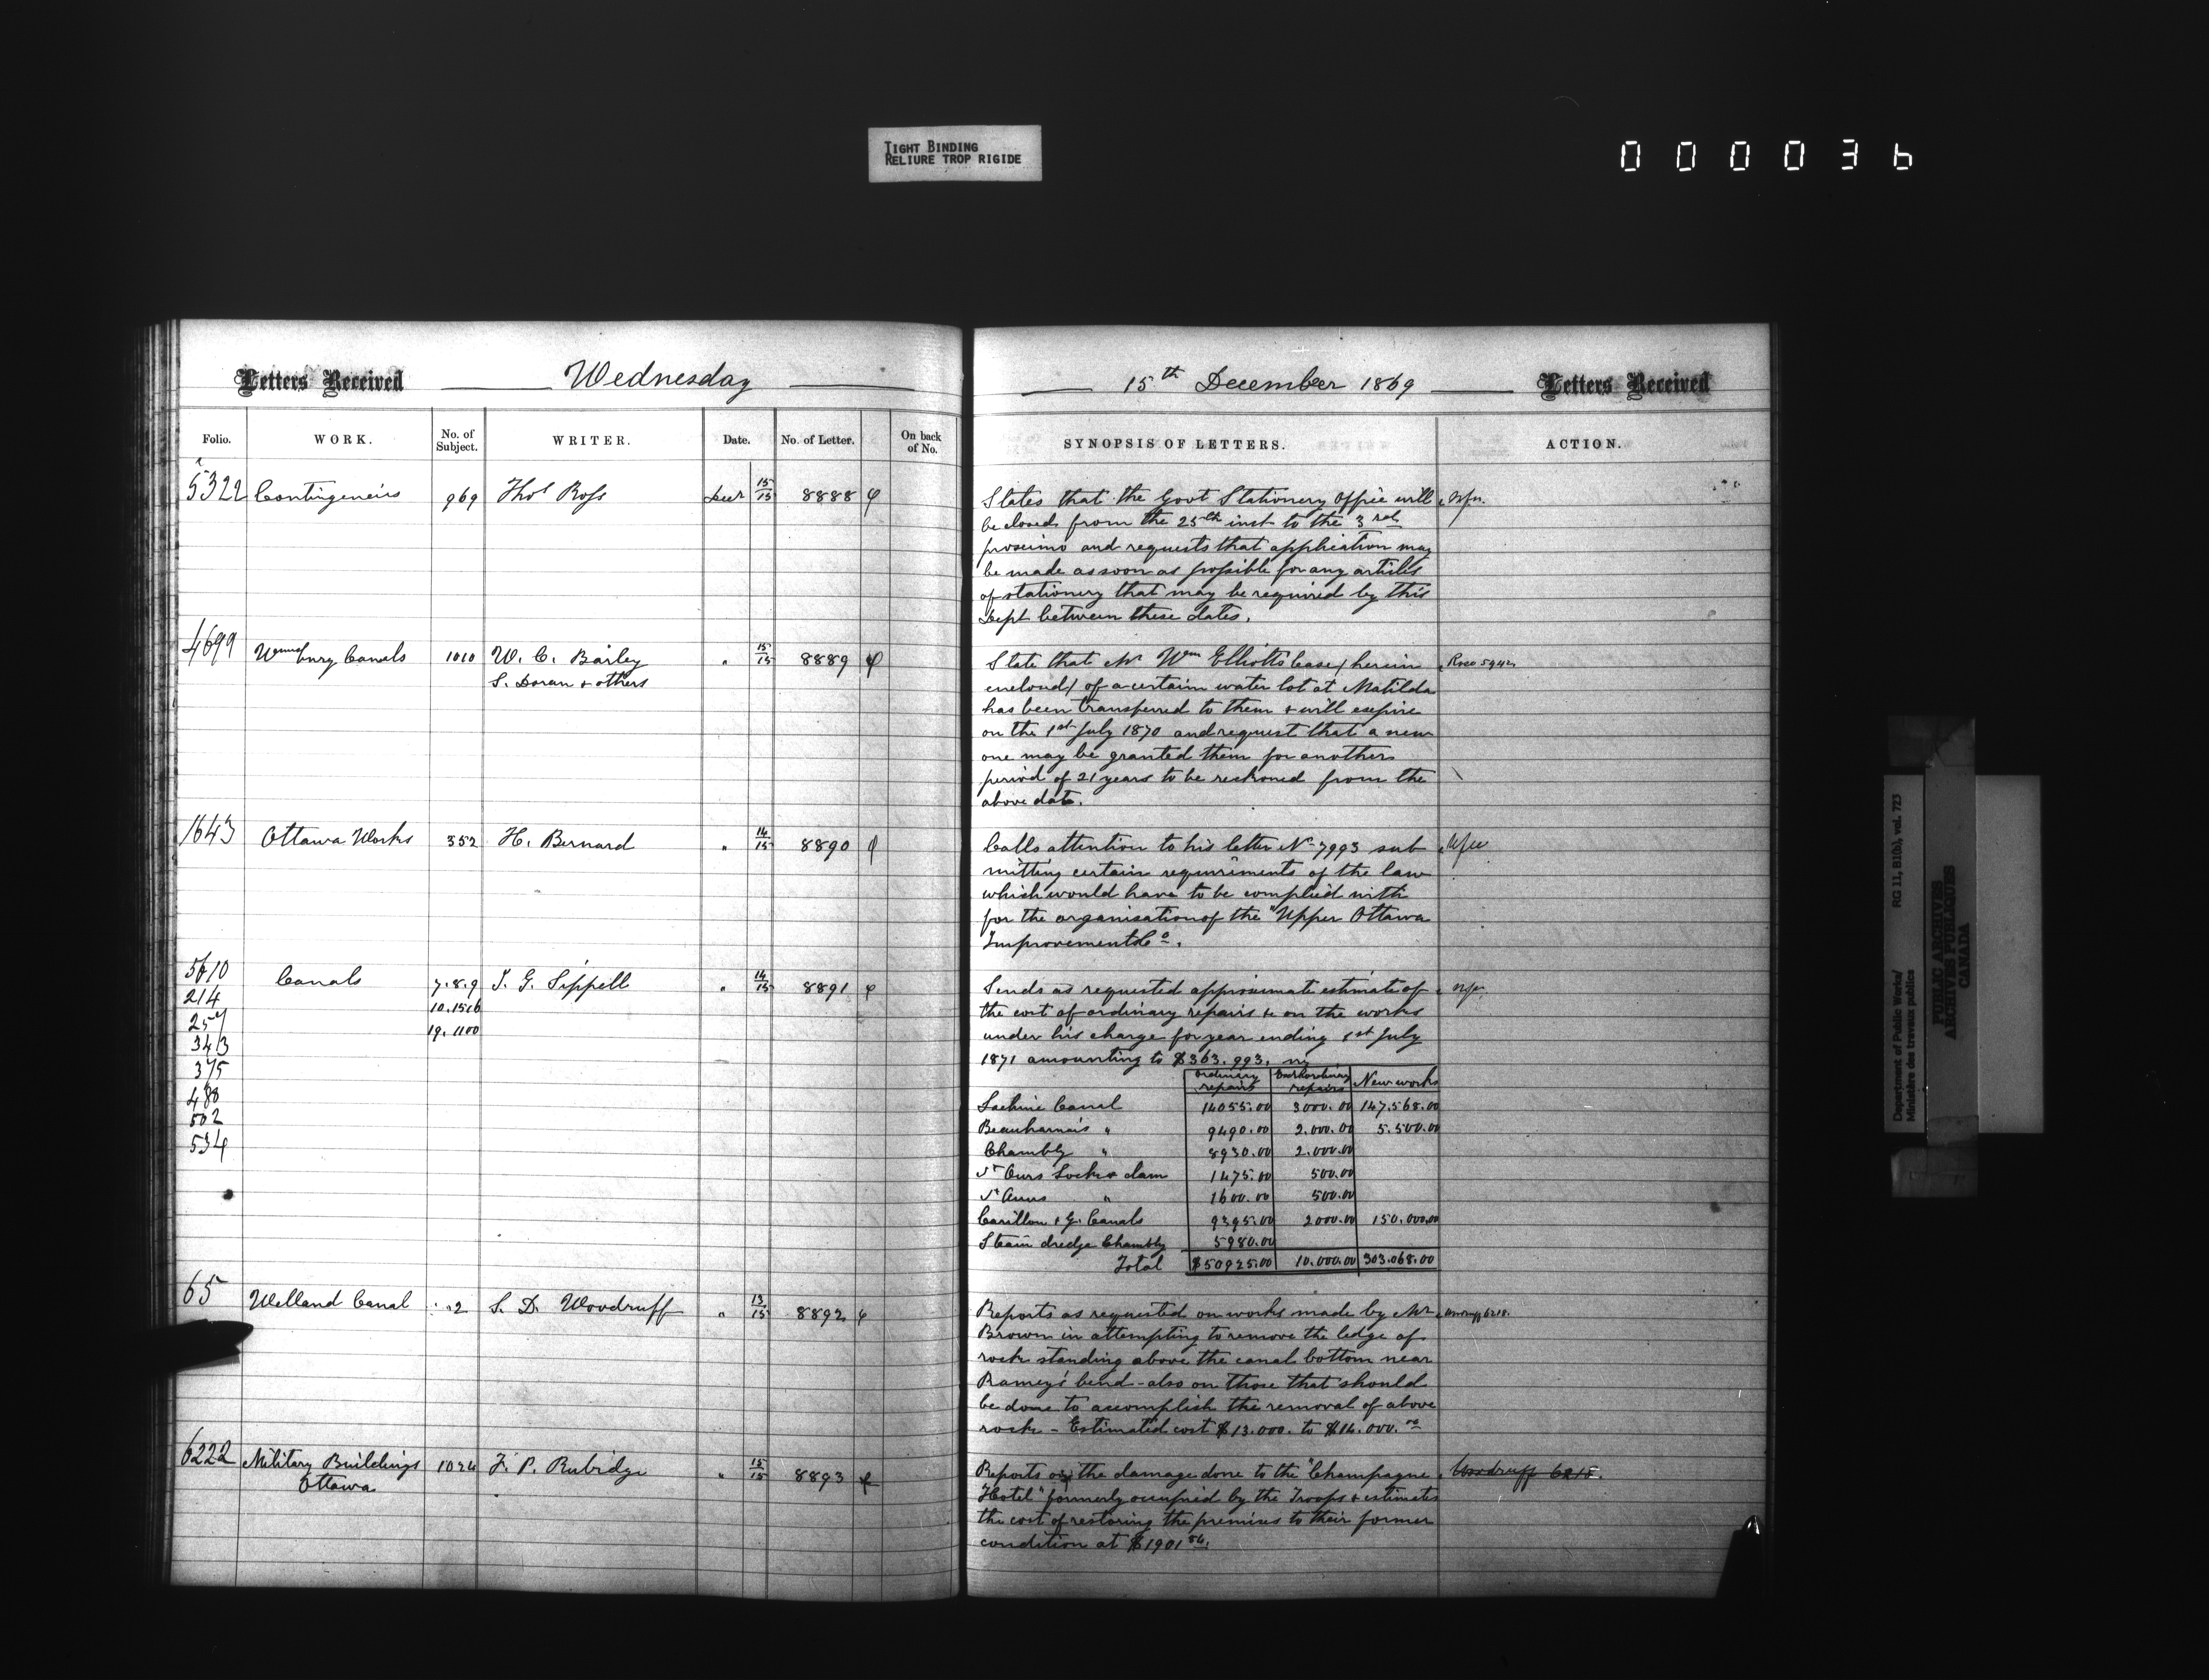 TIGHT BINDING
RELIURE TROP RIGIDE
000036
Letters Received Wednesday
Folio. WORK. No. of Subject. WRITER. Date. No. of Letter. On back of No.
5322 Contingencies 969 Thos Ross Decr 15/15 8888
4699 Wmsburg Canals 1010 W. C. Bailey " 15/15 8889
S. Doran & others
1643 Ottawa Works 352 H. Bernard " 14/15 8890
5610 Canals 7.8.9 J. G. Sippell " 14/15 8891
214 10.15.16
257 19.1100
343
375
488
502
534
65 Welland Canal 2 S. D. Woodruff " 13/15 8892
6222 Military Buildings 1024 F. P. Rubidge " 15/15 8893
Ottawa
15th December 1869 Letters Received
SYNOPSIS OF LETTERS. ACTION.
States that the Govt Stationery Office will
be closed from the 25th inst to the 3rd
proximo and requests that application may
be made as soon as possible for any articles
of stationery that may be required by this
Dept between these dates.
State that Mr Wm Elliotts lease (herein
enclosed) of a certain water lot at Matilda
has been transferred to them & will expire
on the 1st July 1870 and request that a new
one may be granted them for another
period of 21 years to be reckoned from the
above date.
Calls attention to his letter No 7993 sub
mitting certain requirements of the law
which would have to be complied with
for the organisation of the "Upper Ottawa
Improvement Co.
Sends as requested approximate estimate of
the cost of ordinary repairs &c on the works
under his charge for year ending 1st July
1871 amounting to $363.993.
Ordinary repairs Extraordinary repairs New works
Lachine Canal 14055.00 3000.00 147.568.00
Beauharnois " 9490.00 2.000.00 5.500.00
Chambly " 8930.00 2.000.00
St Ours Lock & dam 1475.00 500.00
St Anns " 1600.00 500.00
Carillon & G. Canals 9395.00 2000.00 150.000.00
Steam dredge Chambly 5980.00
Total $50925.00 10.000.00 303.068.00
Reports as requested on works made by Mr Woodruff 6218.
Brown in attempting to remove the ledge of
rock standing above the canal bottom near
Ramey's bend - also on those that should
be done to accomplish the removal of above
rock - Estimated cost $13.000. to $14.000.00
Reports on the damage done to the "Champagne Woodruff 6218.
Hotel" formerly occupied by the Troops & estimates
the cost of restoring the premises to their former
condition at $1901
Department of Public Works/ RG 11, B1(b), vol. 723
Ministère des travaux publics
PUBLIC ARCHIVES
ARCHIVES PUBLIQUES
CANADA